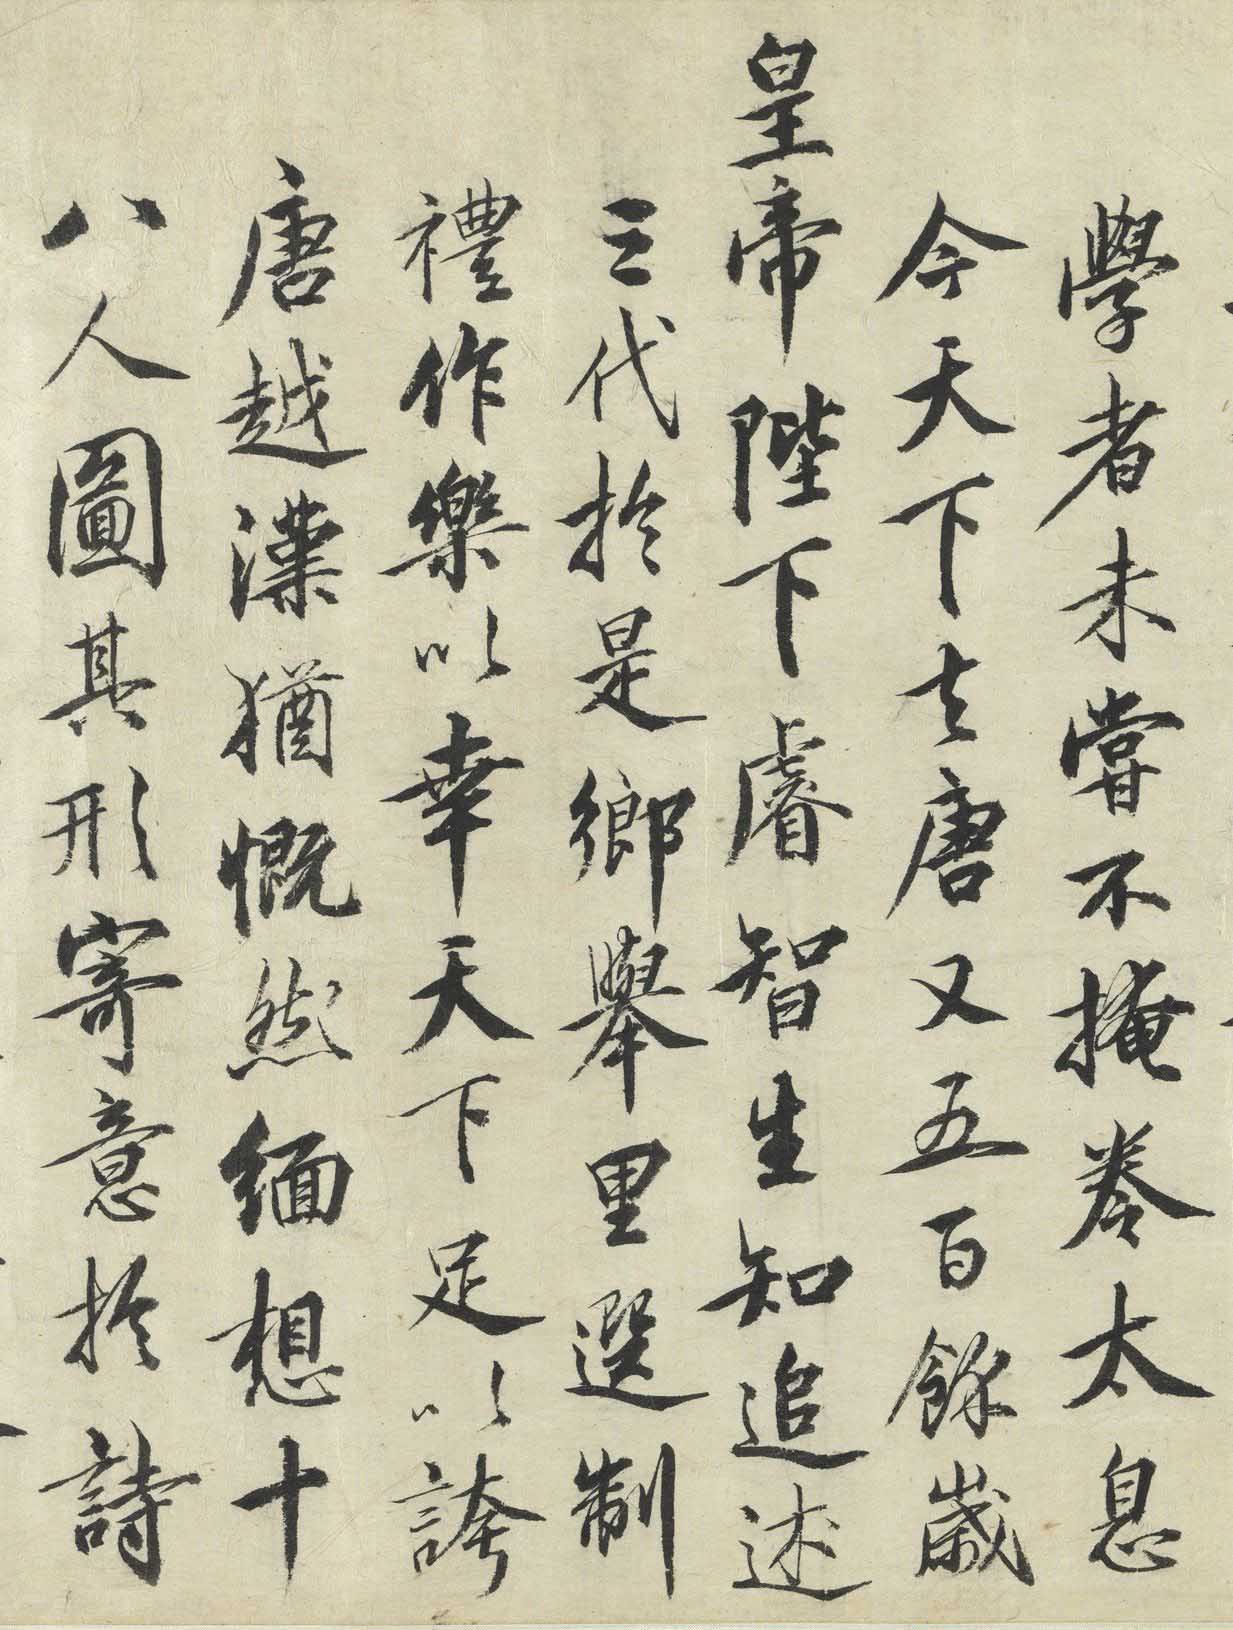 學者未嘗不掩卷太息
今天下去唐又五百餘歲
皇帝陛下睿智生知追述
三代於是鄉舉里選制
禮作樂以幸天下足以誇
唐越漢猶慨然緬想十
八人圖其形寄意於詩